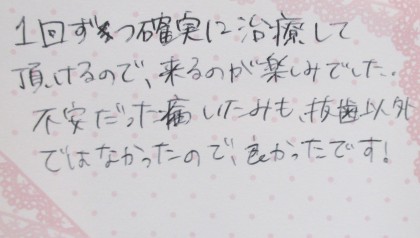 1回ずつ確実に治療して
頂けるので、来るのが楽しみでした。
不安だった痛したみも、抜歯以外
ではなかったので、良かったです!